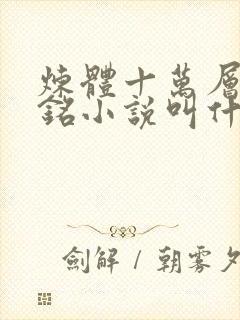 煉體十萬層
銘小說叫什
劍解 / 朝雾夕